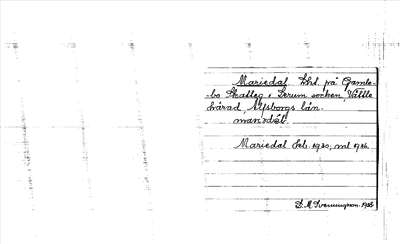 Mariedal, lht på Gamle-
-bo Skatteg. i Lerum socken, Vättle
härad, Älfsborgs län.
Mariedal Leb. 1930, ml 1936.
D. M. Svenningson. 1936